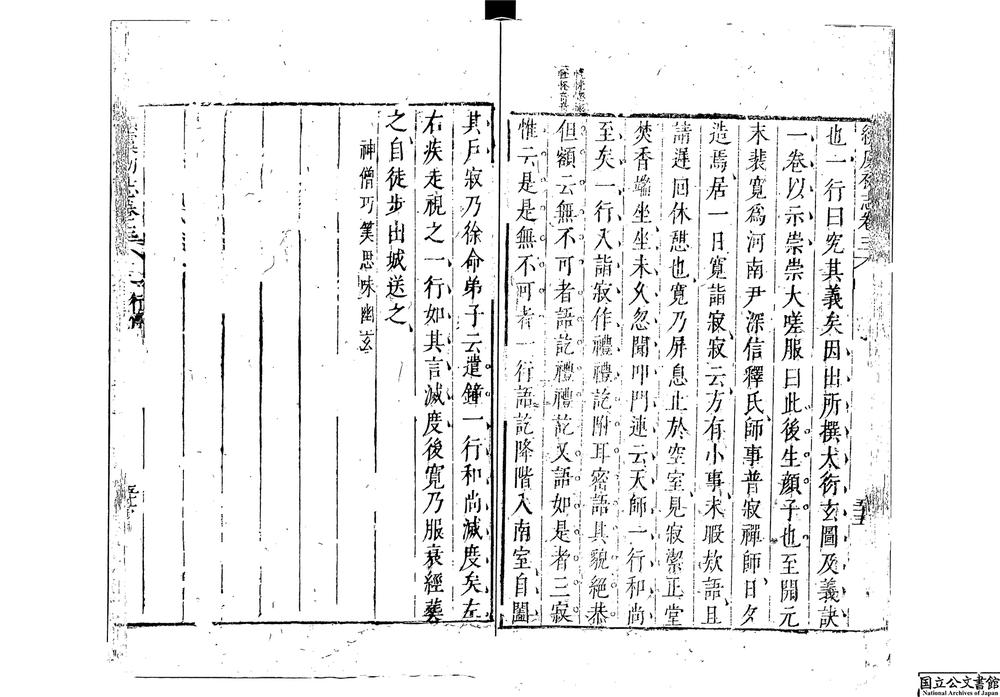 後虞初志卷三
也一行曰究其義矣因出所撰大衍玄圖及義訣
一卷以示崇崇大嗟服曰此後生顏子也至開元
末裴寬爲河南尹深信釋氏師事普寂禪師日夕
造焉居一日寬詣寂寂云方有小事未暇欵語且
請遲回休憩也寬乃屏息止於空室見寂潔正堂
焚香端坐坐未久忽聞叩門連云天師一行和尚
至矣一行入詣寂作禮禮訖附耳密語其貌絕恭
但額云無不可者語訖禮禮訖又語如是者三寂
惟云是是無不可者一行語訖降階入南室自闔
其戶寂乃徐命弟子云遣鐘一行和尚滅度矣左
右疾走視之一行如其言滅度後寬乃服衰絰葬
之自徒步出城送之
神僧巧笑思味幽玄
一行傳
国立公文書館
National Archives of Japan